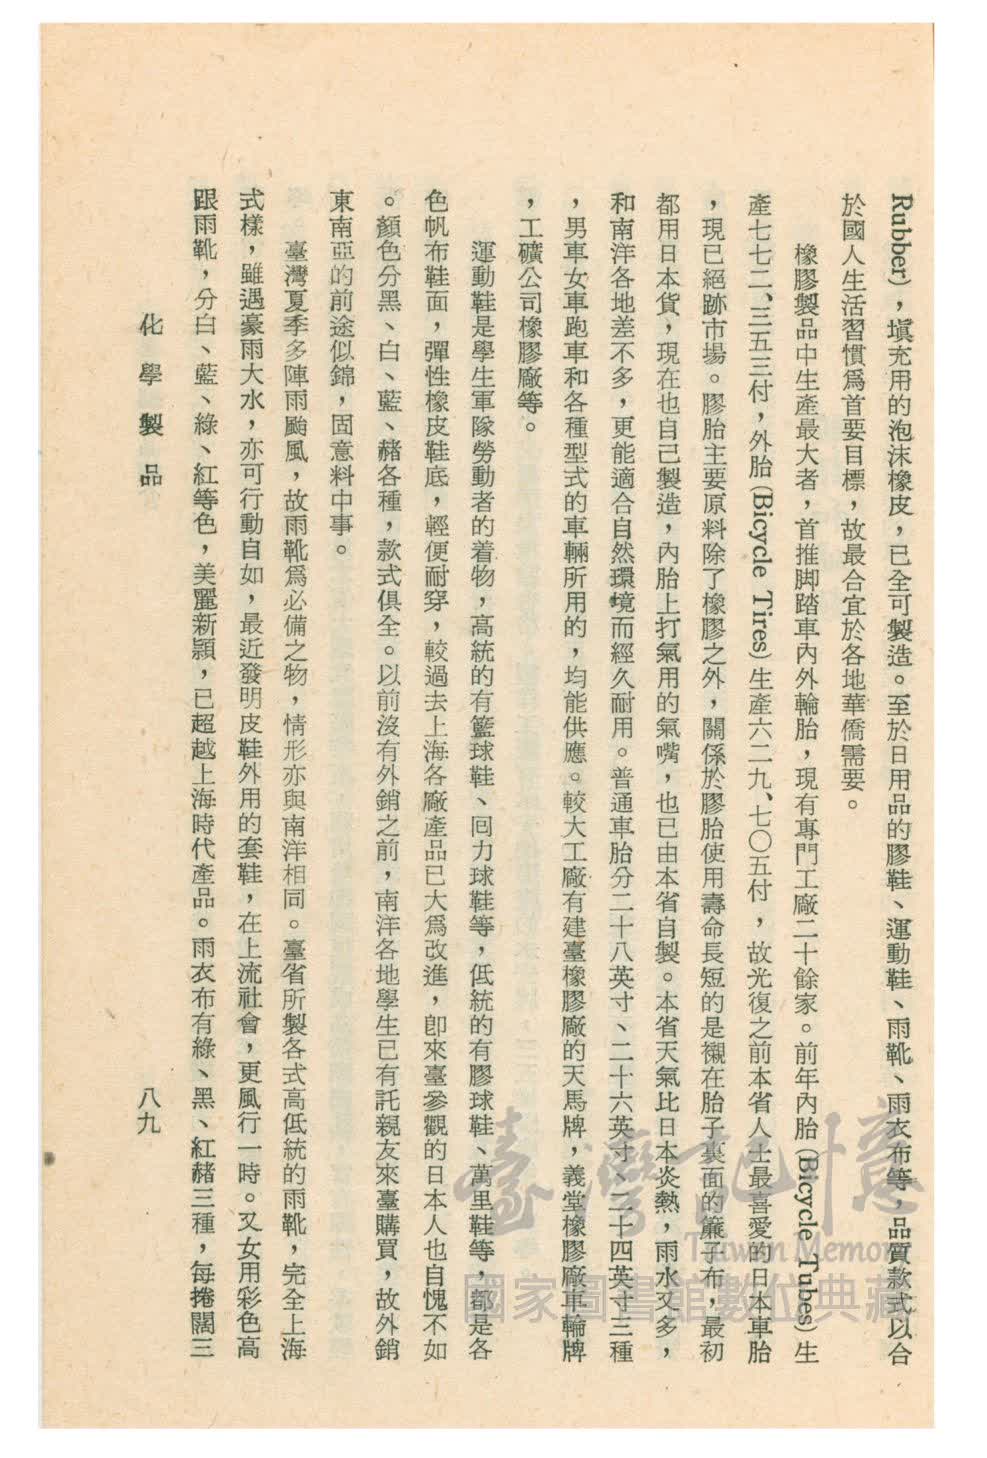 Rubber），塡充用的泡沫橡皮，已全可製造。至於日用品的膠鞋、運動鞋、雨靴、雨衣布等，品質款式以合
於國人生活習慣爲首要目標，故最合宜於各地華僑需要。
橡膠製品中生產最大者，首推脚踏車內外輪胎，現有專門工廠二十餘家。前年內胎（Bicycle Tubes）生
產七七二、三五三付，外胎（Bicycle Tires）生產六二九、七〇五付，故光復之前本省人士最喜愛的日本車胎
，現已絕跡市場。膠胎主要原料除了橡膠之外，關係於膠胎使用壽命長短的是襯在胎子裏面的簾子布，最初
都用日本貨，現在也自己製造，內胎上打氣用的氣嘴，也已由本省自製。本省天氣比日本炎熱，雨水又多，
和南洋各地差不多，更能適合自然環境而經久耐用。普通車胎分二十八英寸、二十六英寸、二十四英寸三種
，男車女車跑車和各種型式的車輛所用的，均能供應。較大工廠有建臺橡膠廠的天馬牌，義堂橡膠廠車輪牌
，工礦公司橡膠廠等。
運動鞋是學生軍隊勞動者的着物，高統的有籃球鞋、回力球鞋等，低統的有膠球鞋、萬里鞋等，都是各
色帆布鞋面，彈性橡皮鞋底，輕便耐穿，較過去上海各廠產品已大爲改進，卽來臺參觀的日本人也自愧不如
。顏色分黑、白、藍、赭各種，款式俱全。以前沒有外銷之前，南洋各地學生已有託親友來臺購買，故外銷
東南亞的前途似錦，固意料中事。
臺灣夏季多陣雨颱風，故雨靴爲必備之物，情形亦與南洋相同。臺省所製各式高低統的雨靴，完全上海
式樣，雖遇豪雨大水，亦可行動自如，最近發明皮鞋外用的套鞋，在上流社會，更風行一時。又女用彩色高
跟雨靴，分白、藍、綠、紅等色，美麗新穎，已超越上海時代產品。雨衣布有綠、黑、紅赭三種，每捲闊三
化學製品
八九
臺灣記憶
Taiwan Memory
國家圖書館數位典藏